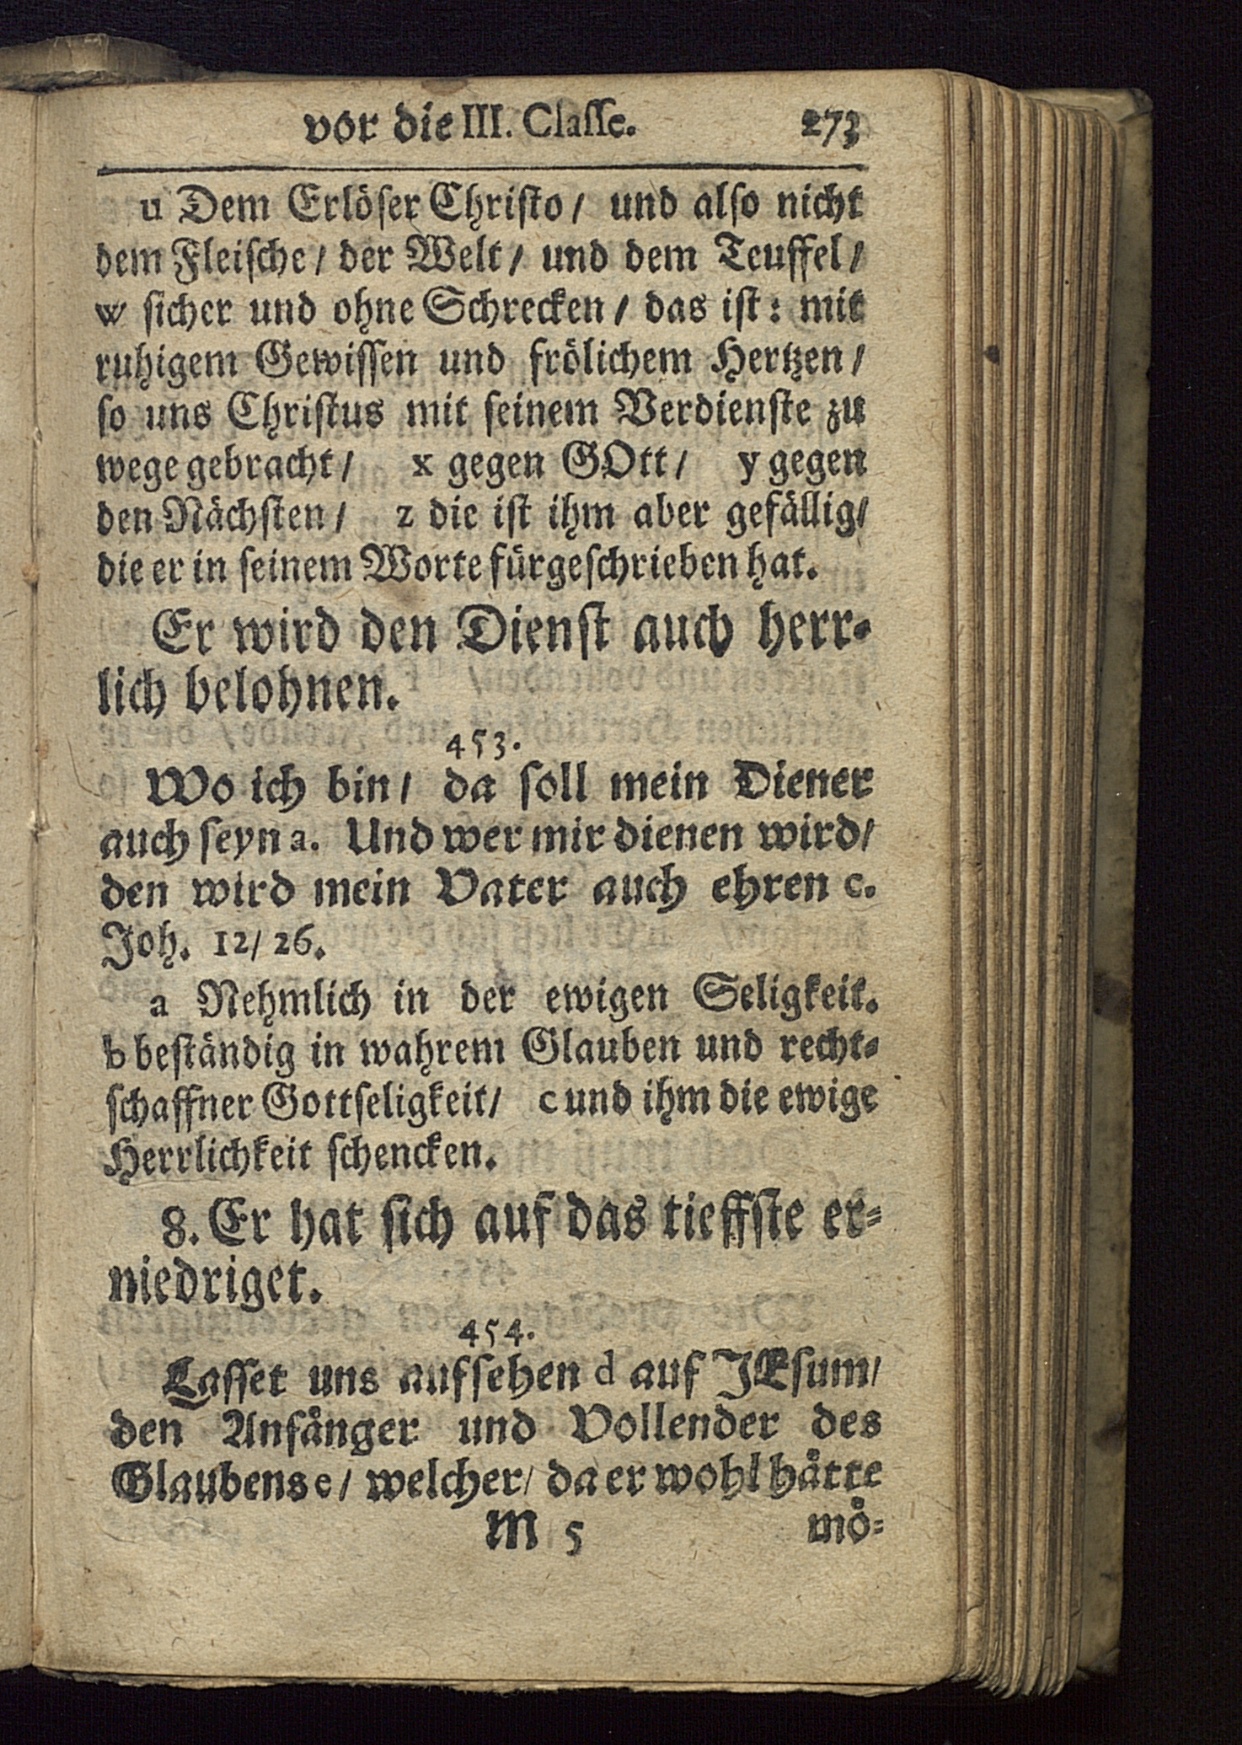 vor die III. Classe. 273
u Dem Erlöser Christo / und also nicht
dem Fleische / der Welt / und dem Teuffel /
w sicher und ohne Schrecken / das ist: mit
ruhigem Gewissen und frölichem Hertzen /
so uns Christus mit seinem Verdienste zu
wege gebracht / x gegen GOtt / y gegen
den Nächsten / z die ist ihm aber gefällig /
die er in seinem Worte fürgeschrieben hat.
Er wird den Dienst auch herr-
lich belohnen.
453.
Wo ich bin / da soll mein Diener
auch seyn a. Und wer mir dienen wird /
den wird mein Vater auch ehren c.
Joh. 12 / 26.
a Nehmlich in der ewigen Seligkeit.
b beständig in wahrem Glauben und recht-
schaffner Gottseligkeit / c und ihm die ewige
Herrlichkeit schencken.
8. Er hat sich auf das tieffste er-
niedriget.
454.
Lasset uns aufsehen d auf JEsum /
den Anfånger und Vollender des
Glaubens e / welcher / da er wohl håtte
M 5 mö-